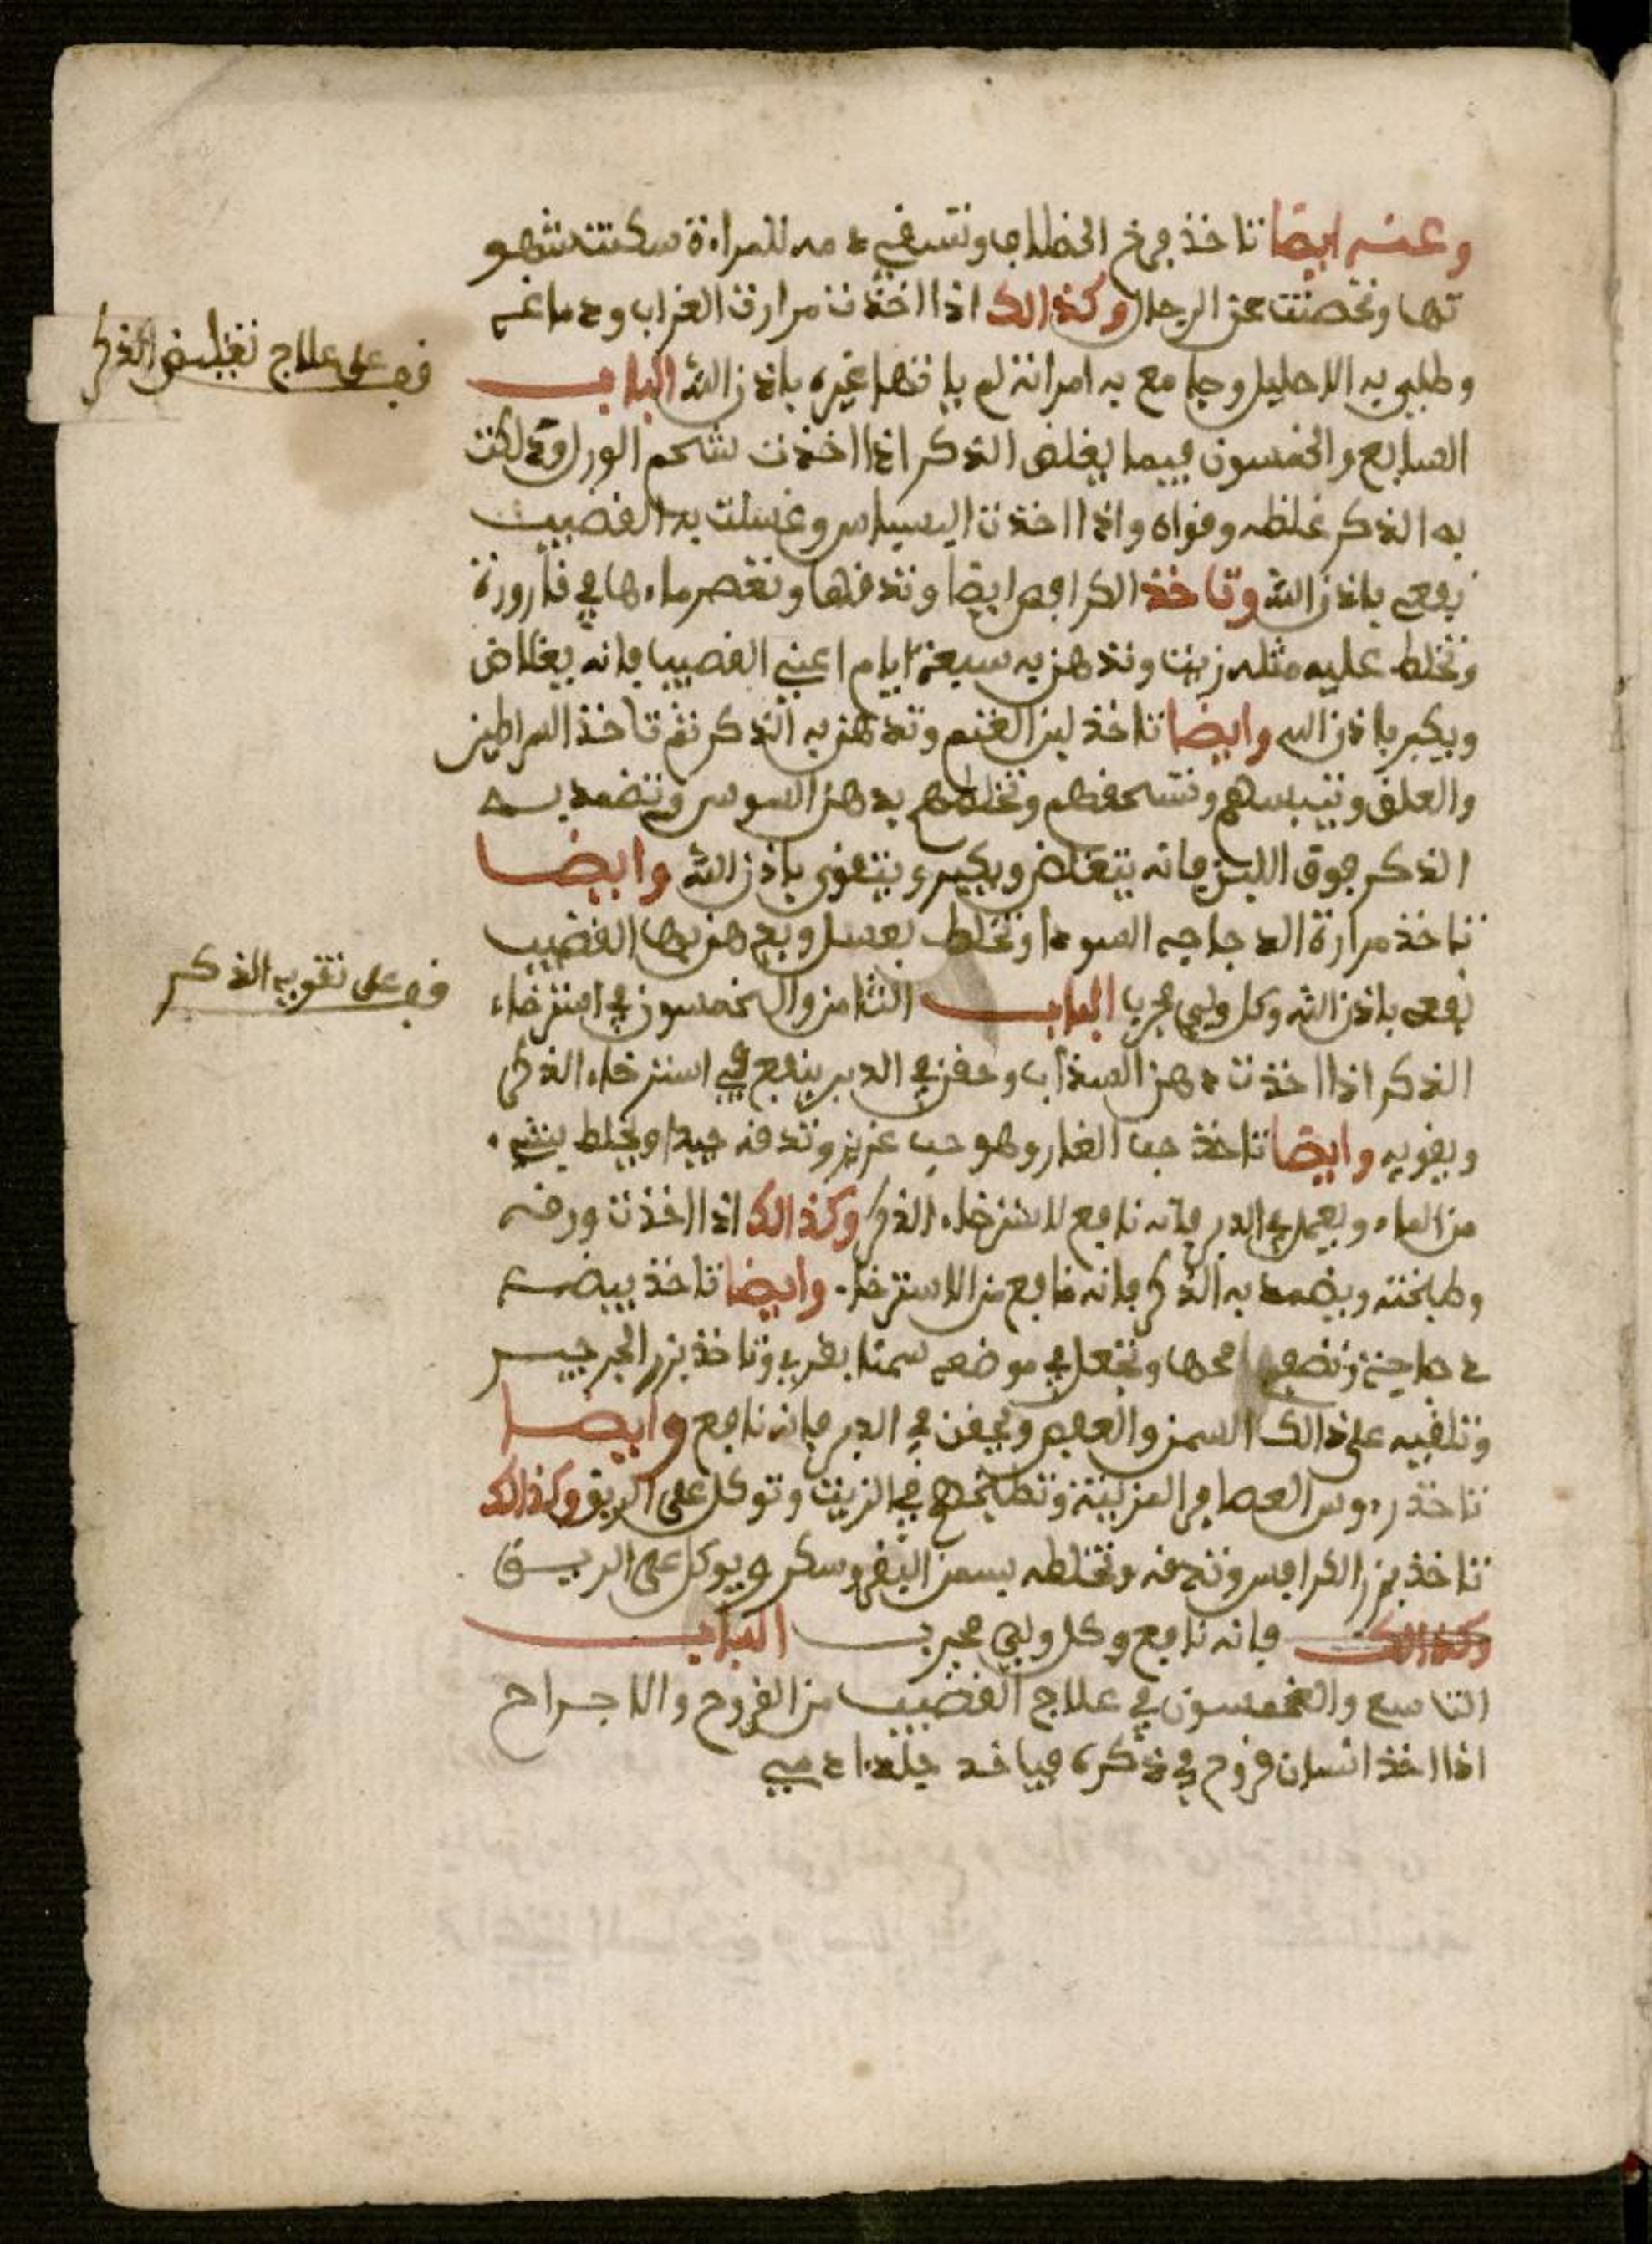 وعنه ايضا تاخذ فرخ الخطاب وتسقي دمه للمراءة سكنت شهو
تها وتحصنت عن الرجال وكذالك اذا اخذت مرارة الغراب ودماغه
وطلي به الاحليل وجامع به امراته لم ياتها غيره باذن الله الباب
السابع والخمسون فيما يغلض الذكر اذا اخذت شحم الورل ودلكت
به الذكر غلظه وقواه واذا اخذت البسباس وغسلت به القضيب
نفعه باذن الله وتاخذ الكرافس ايضا وتدقها وتعصر ماءها في قارورة
وتخلط عليه مثله زيت وتدهن به سبعة ايام اعني القضيب فانه يغلاض
ويكبر باذن الله وايضا تاخذ لبن الغنم وتدهن به الذكر ثم تاخذ السراطين
والعلق وتيبسهم وتسحقهم وتخلطهم بدهن السوسن وتضمد به
الذكر فوق اللبن فانه يتغلض ويكبر ويتقوى باذن الله وايضا
تاخذ مرارة الدجاجه السودا وتخلط بعسل ويدهن بها القضيب
نفعه باذن الله وكل ولي مجرب الباب الثامن والخمسون في استرخاء
الذكر اذا اخذت دهن السذاب وحقن في الدبر ينفع في استرخاء الذكر
ويقويه وايضا تاخذ حب الغار وهو حب عزيز وتدقه جيدا ويخلط بشيء
من الماء ويعمل في الدبر فانه نافع لاسترخاء الذكر وكذالك اذا اخذت ورقه
وطبخته ويضمد به الذكر فانه نافع من الاسترخاء وايضا تاخذ بيضة
دجاجة وتضع محها وتجعل في موضعه سمنا بقري وتاخذ بزر الجرجير
وتلقيه على ذالك السمن والعفص ويحقن في الدبر فانه نافع وايضا
تاخذ رءوس العصافر المزبية وتطبخهم في الزيت وتوكل على الريق وكذالك
تاخذ بزر الكرافس وتدقه وتخلطه بسمن البقر وسكر ويوكل على الريق
وكذالك فانه نافع وكل ولي مجرب الباب
التاسع والخمسون في علاج القضيب من القروح والاجراح
اذا اخذ انسان قروح في ذكره فياخد جلد ادمي
قف على علاج تغليض الذكر
قف على تقويه الذكر